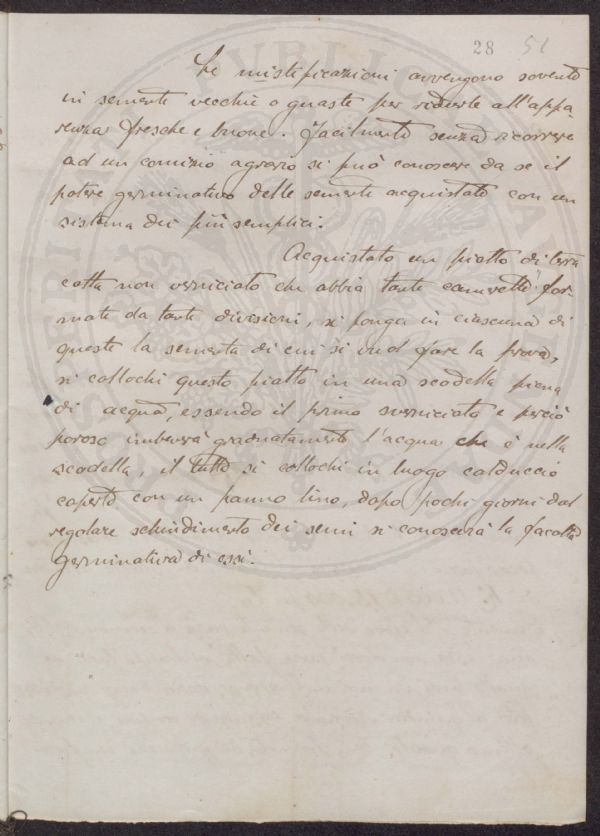 28 51
Le mistificazioni avvengono sovente
in sementi vecchie o guaste per ridurle all'appa-
renza fresche e buone. Facilmente senza ricorrere
ad un comizio agrario si può conoscere da se il
potere germinativo delle sementi acquistate con un
sistema dei più semplici.
Acquistato un piatto di terra
cotta non verniciato che abbia tante camerette for-
mate da tante divisioni, si ponga in ciascuna di
queste la sementa di cui si vuol fare la prova,
si collochi questo piatto in una scodella piena
di acqua, essendo il primo sverniciato e perciò
poroso imbeverà gradatamente l'acqua che è nella
scodella, il tutto si collochi in luogo calduccio
coperto con un panno lino, dopo pochi giorni dal
regolare schiudimento dei semi si conoscerà la facoltà
germinativa di essi.